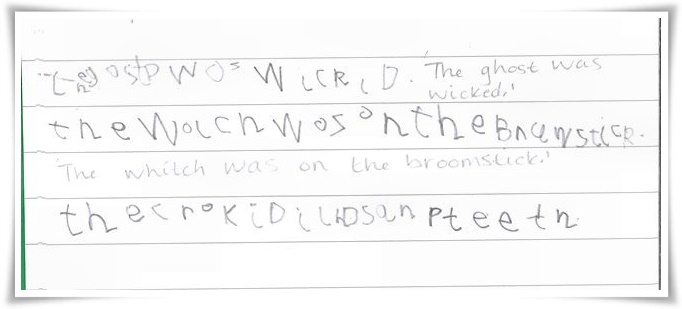 the gostp wos WicRiD. 'The ghost was
wicked.'
the Woichwos on the BnuwsticR.
'The whitch was on the broomstick.'
thecroKiDil hDsanpteeth